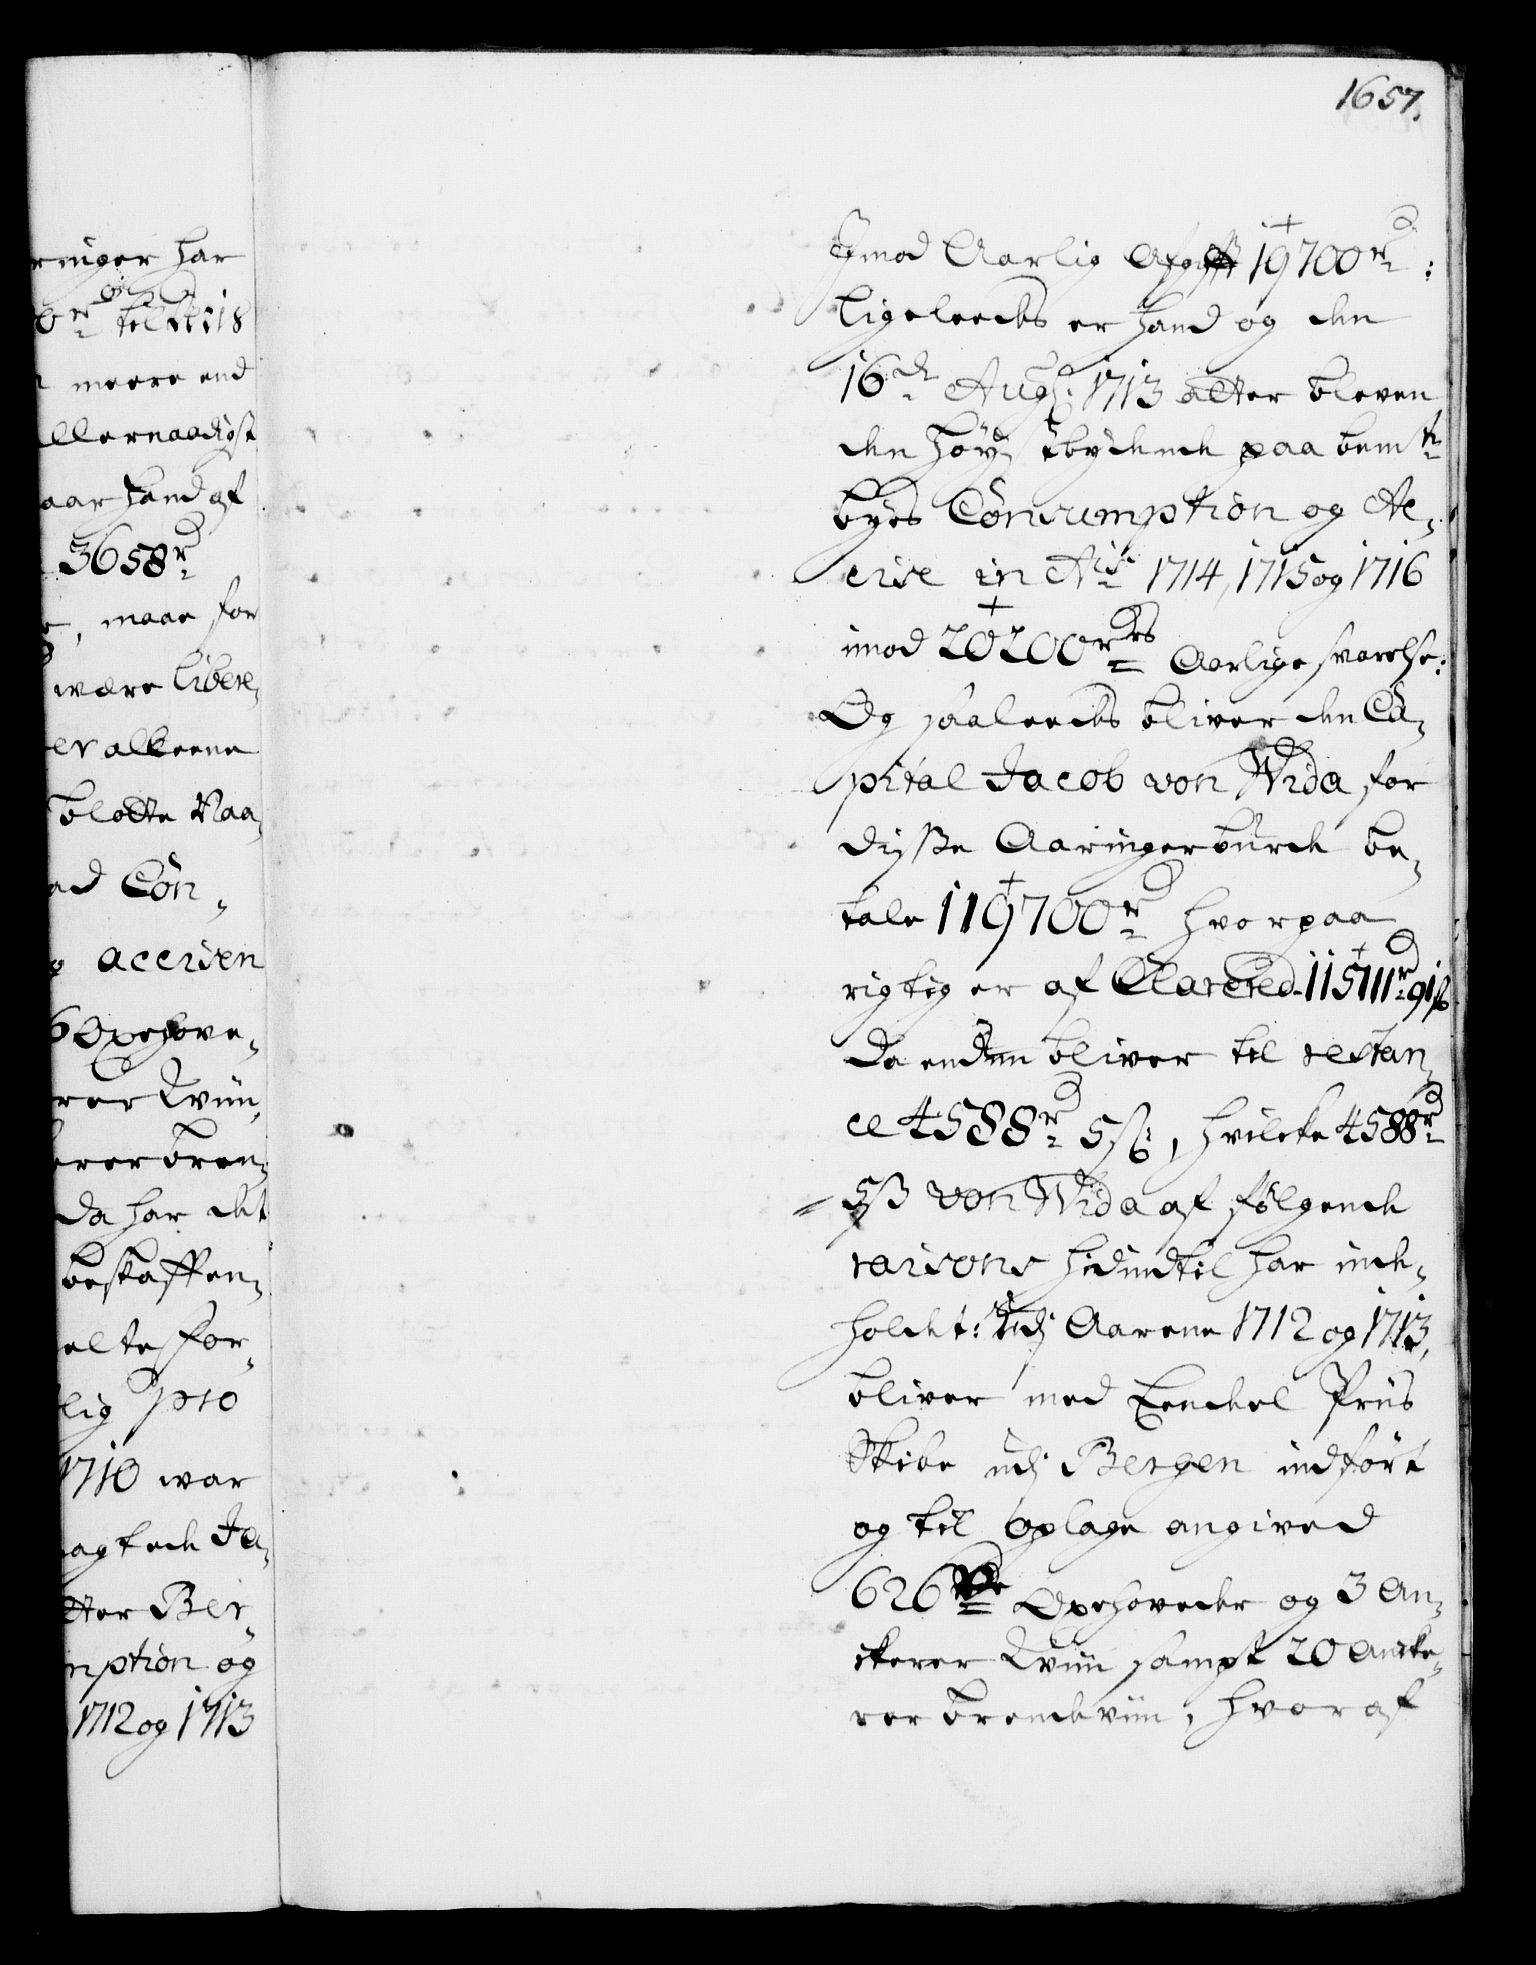 1657.
ringer har
til
meere end
llernaadigst
aar hand af
3658 rd
, maae for
være libere,
er alleene
blotte Naa,
ad Con,
g accisen
6 Oxehove,
rer Viin,
erer bren,
da har det
beskaffen,
elte for,
lig pro
1710 war
agtede Ja,
tter Ber,
mption og
1712 og 1713
Imod Aarlig Afgifft 19700 rd:
ligeleedes er hand og den
16de Augs: 1713 atter bleven
den høystbydende paa bemte
byes Consumption og Ac,
cise in Ais 1714, 1715 og 1716
imod 20200 rdrs Aarlige svarelse:
Og saaleedes bliver den Ca,
pital Jacob von Wida for
disse Aaringer burde be,
tale 119700 rd hvorpaa
rigtig er af Clarered 115111 rd 91 s
da endnu bliver til restan,
ce 4588 rd 5 s:, hvilcke 4588 rd
5 s von Wida af følgende
raisons hidindtil har inde,
holdet: udj Aarene 1712 og 1713,
bliver med Eendeel Priis
Skibe udj Bergen indført
og til oplage angived
626 Oxehoveder og 3 An,
ckerer Viin sampt 20 Ancke,
rer brendeviin, hvoraf